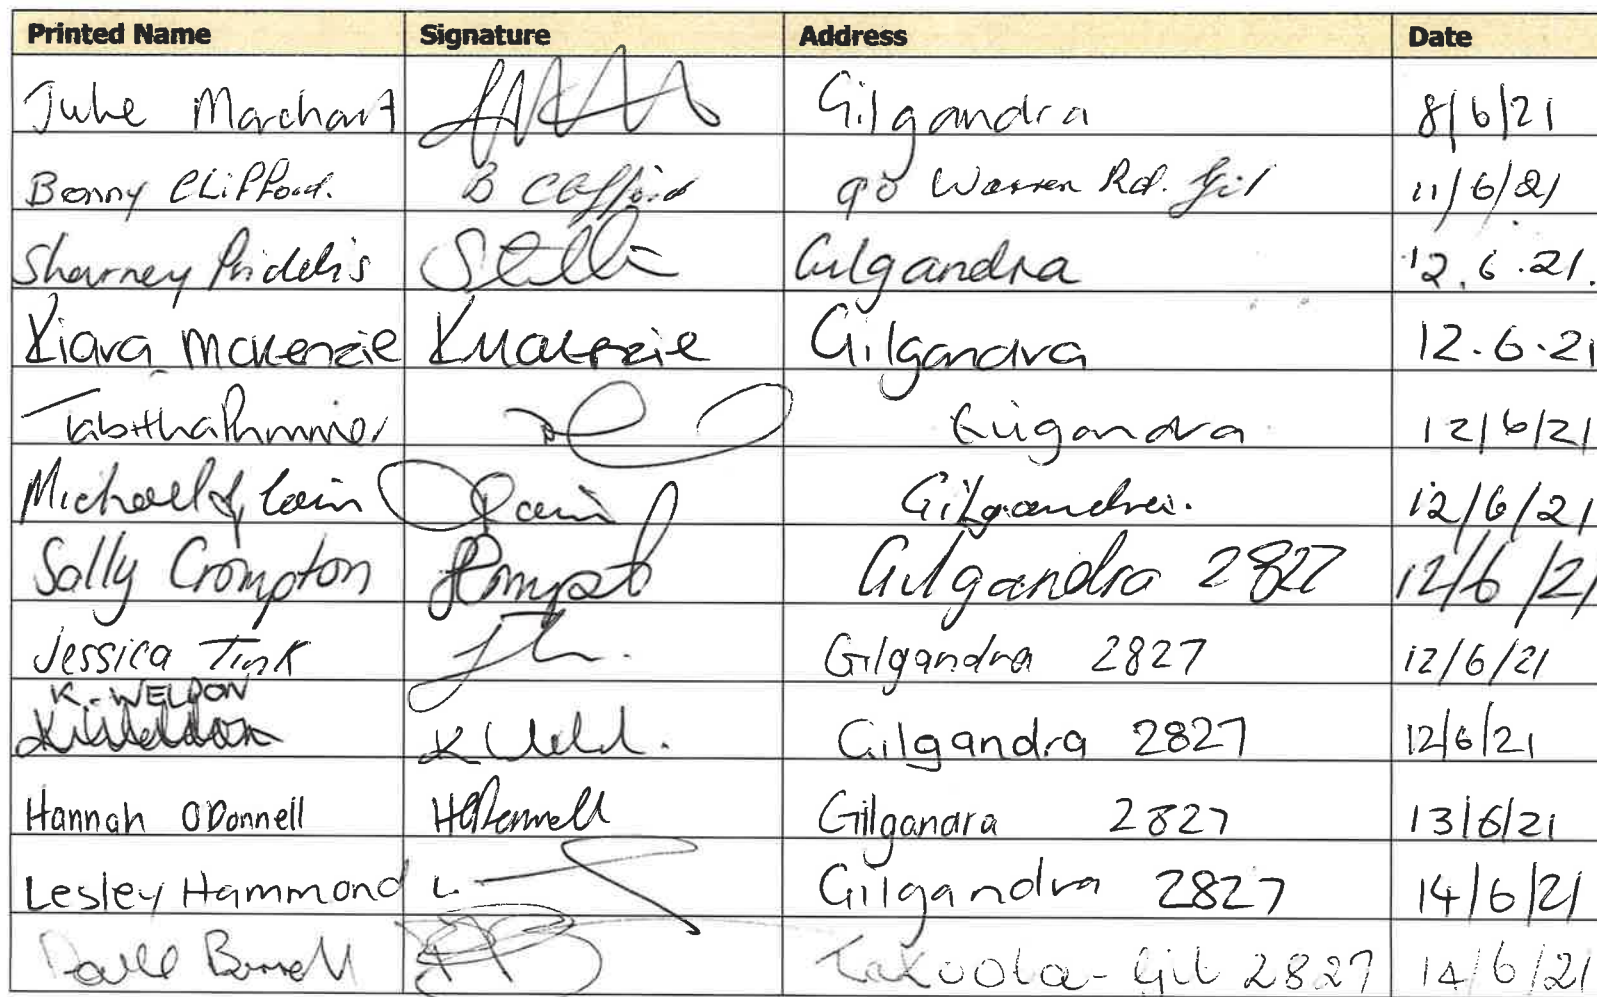 Printed Name Signature Address Date
Julie Marchant Gilgandra 8/6/21
Benny Clifford. B Clifford 90 Warren Rd. Gil 11/6/21
Sharney Gilgandra 12.6.21.
Kiara McKenzie KMcKenzie Gilgandra 12.6.21
Tabitha Gilgandra 12/6/21
Michael Gilgandra. 12/6/21
Sally Crompton Gilgandra 2827 12/6/21
Jessica Tink Gilgandra 2827 12/6/21
K. WELDON
K Weld. Gilgandra 2827 12/6/21
Hannah O'Donnell HODonnell Gilgandra 2827 13/6/21
Lesley Hammond L. Gilgandra 2827 14/6/21
Gil 2827 14/6/21